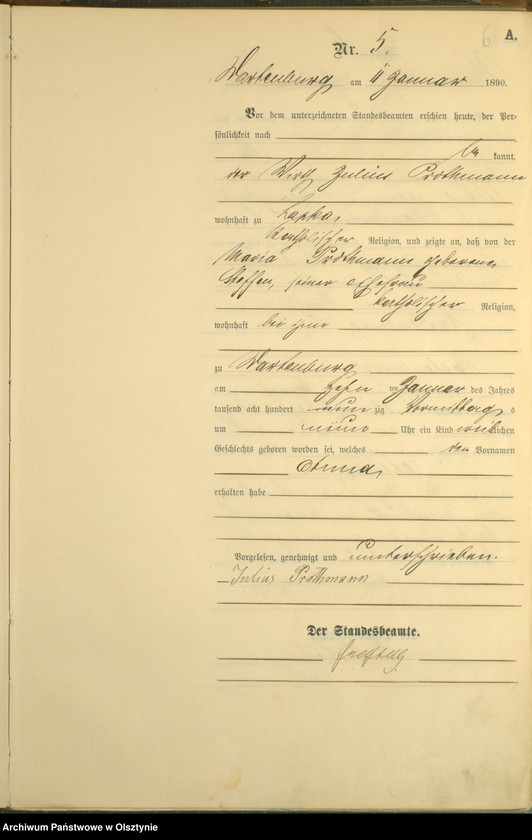 6 A.
Nr. 5.
Wartenburg am 11 Januar 1890.
Vor dem unterzeichneten Standesbeamten erschien heute, der Per-
sönlichkeit nach
be kannt,
der Wirth Julius Prothmann
wohnhaft zu Lapka,
katholischer Religion, und zeigte an, daß von der
Maria Prothmann geborenen
Steffen, seiner Ehefrau
katholischer Religion,
wohnhaft bei ihm
zu Wartenburg
am zehn ten Januar des Jahres
tausend acht hundert neun zig Vormittag s
um neun Uhr ein Kind weiblichen
Geschlechts geboren worden sei, welches den Vornamen
Anna
erhalten habe
Vorgelesen, genehmigt und unterschrieben.
Julius Prothmann
Der Standesbeamte.
Archiwum Państwowe w Olsztynie